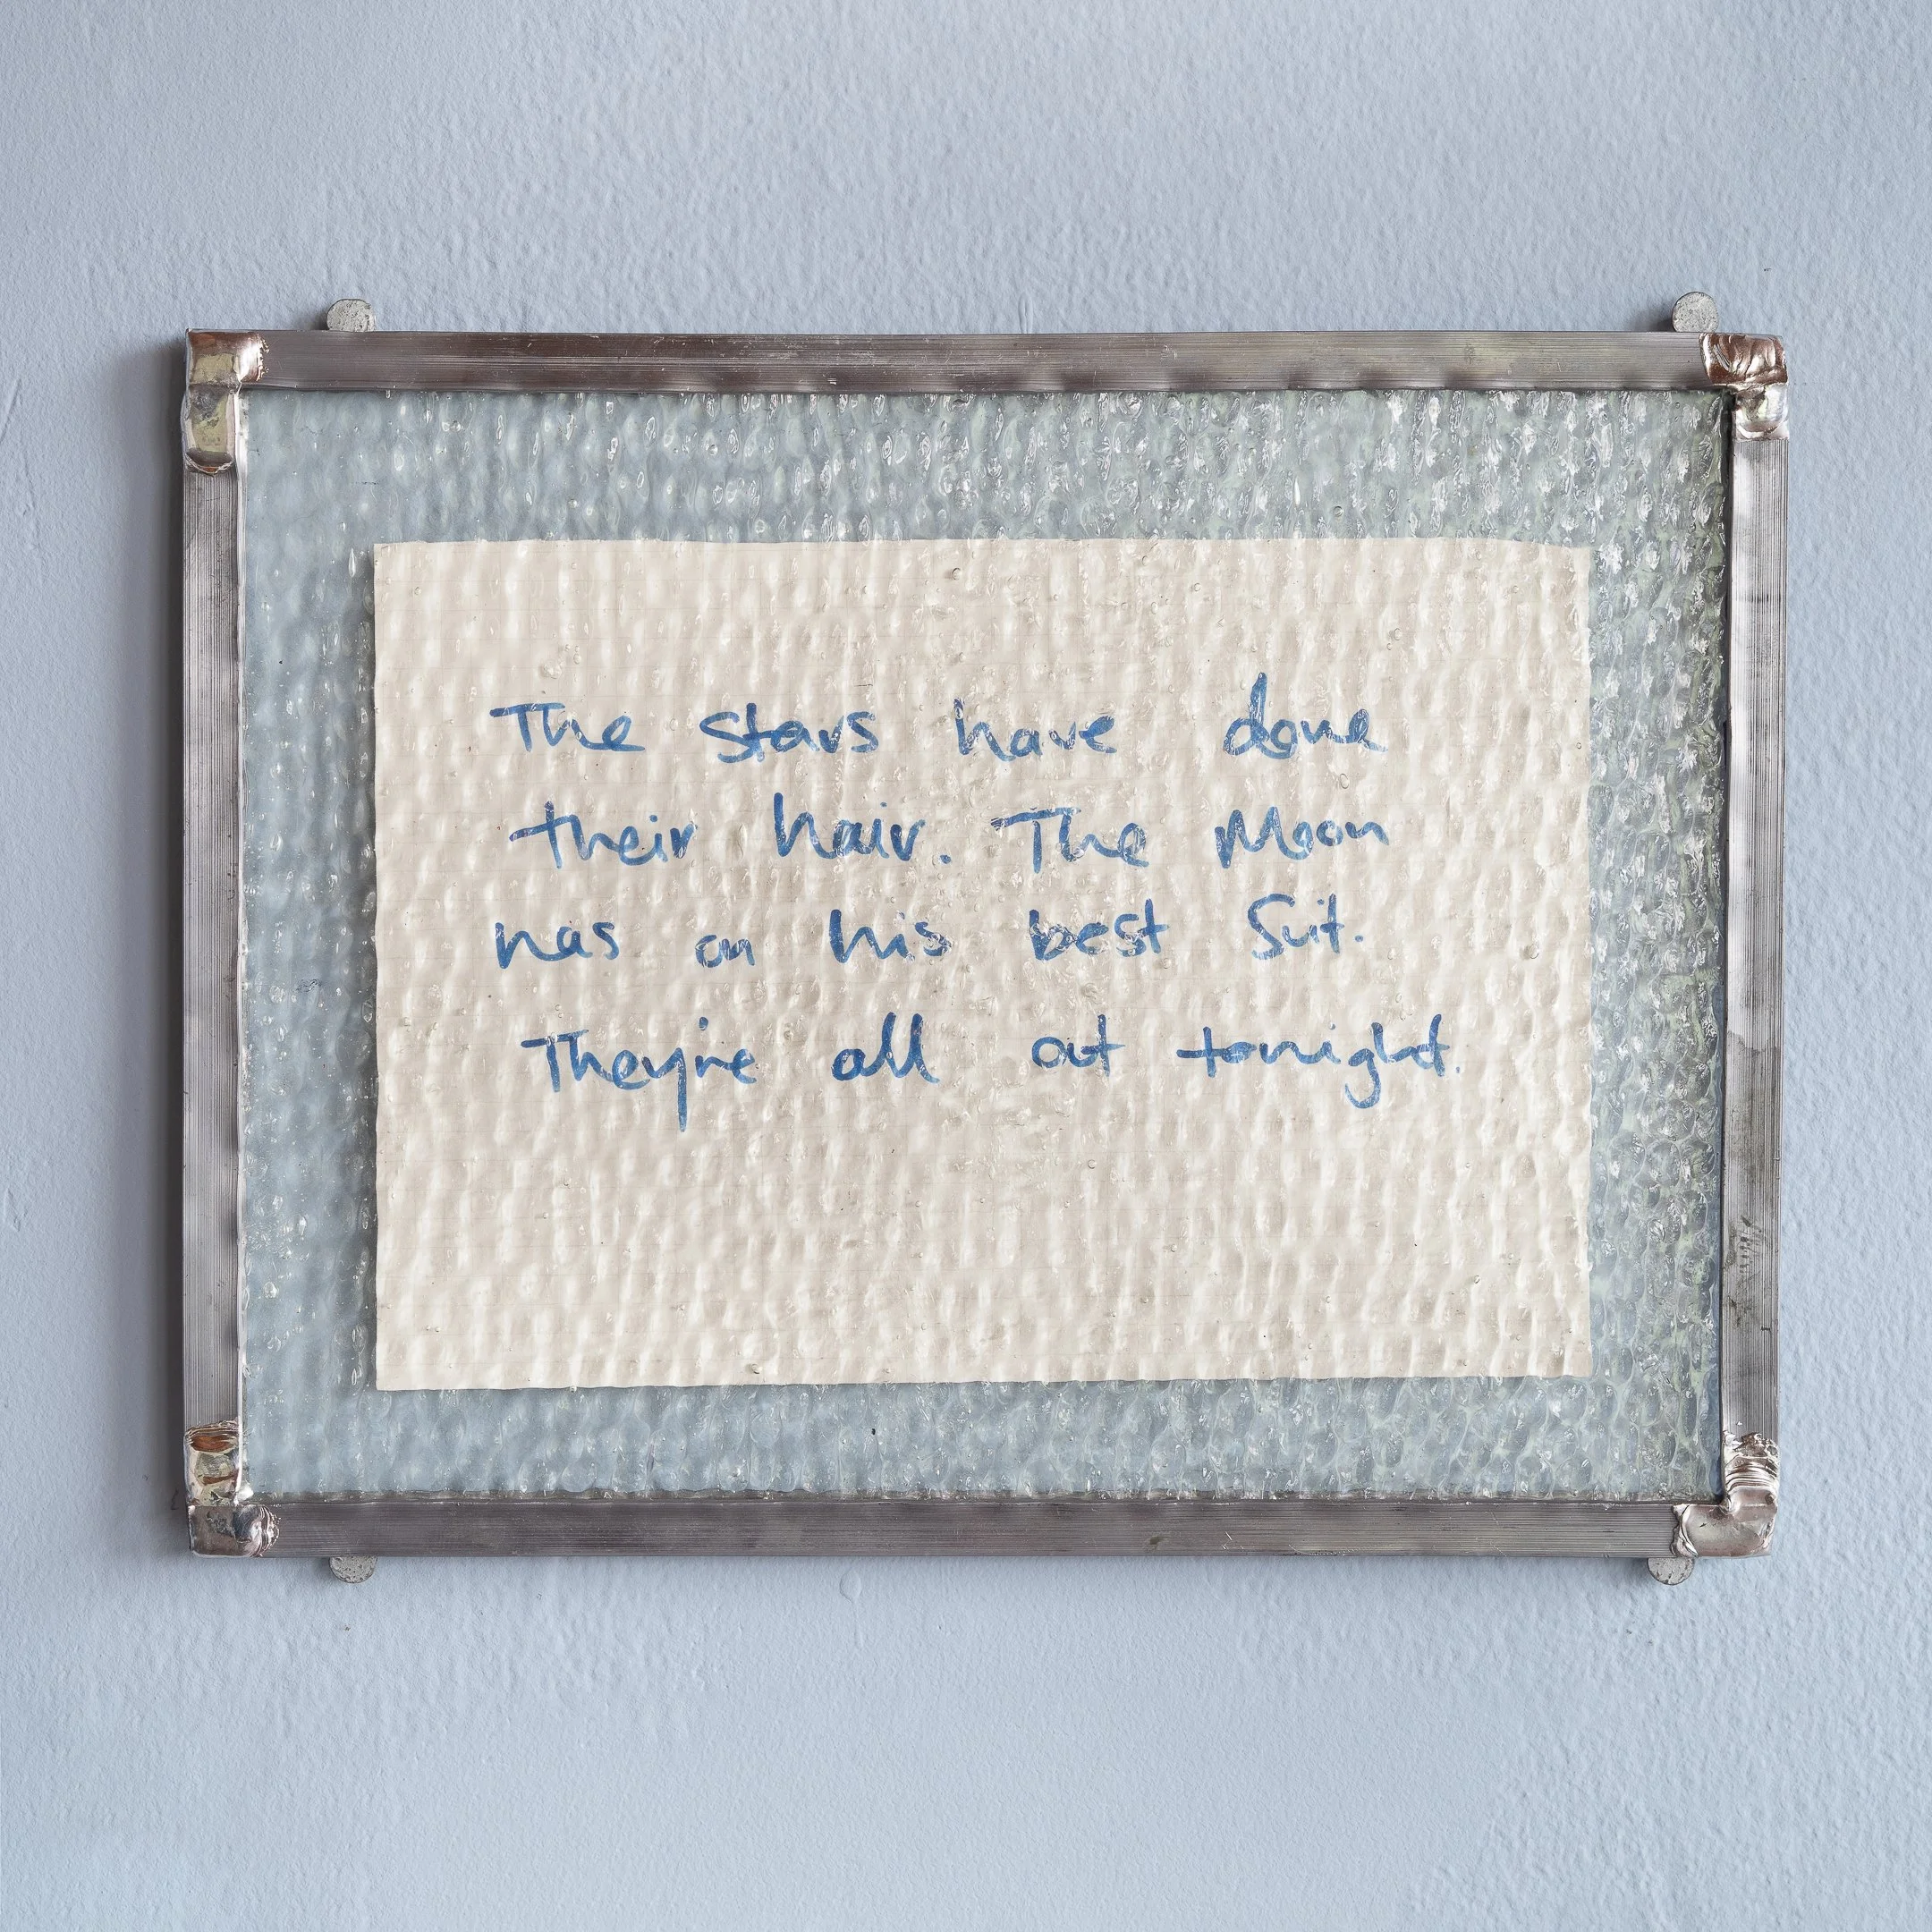 The stars have done
their hair. The Moon
has on his best Suit.
They're all out tonight.